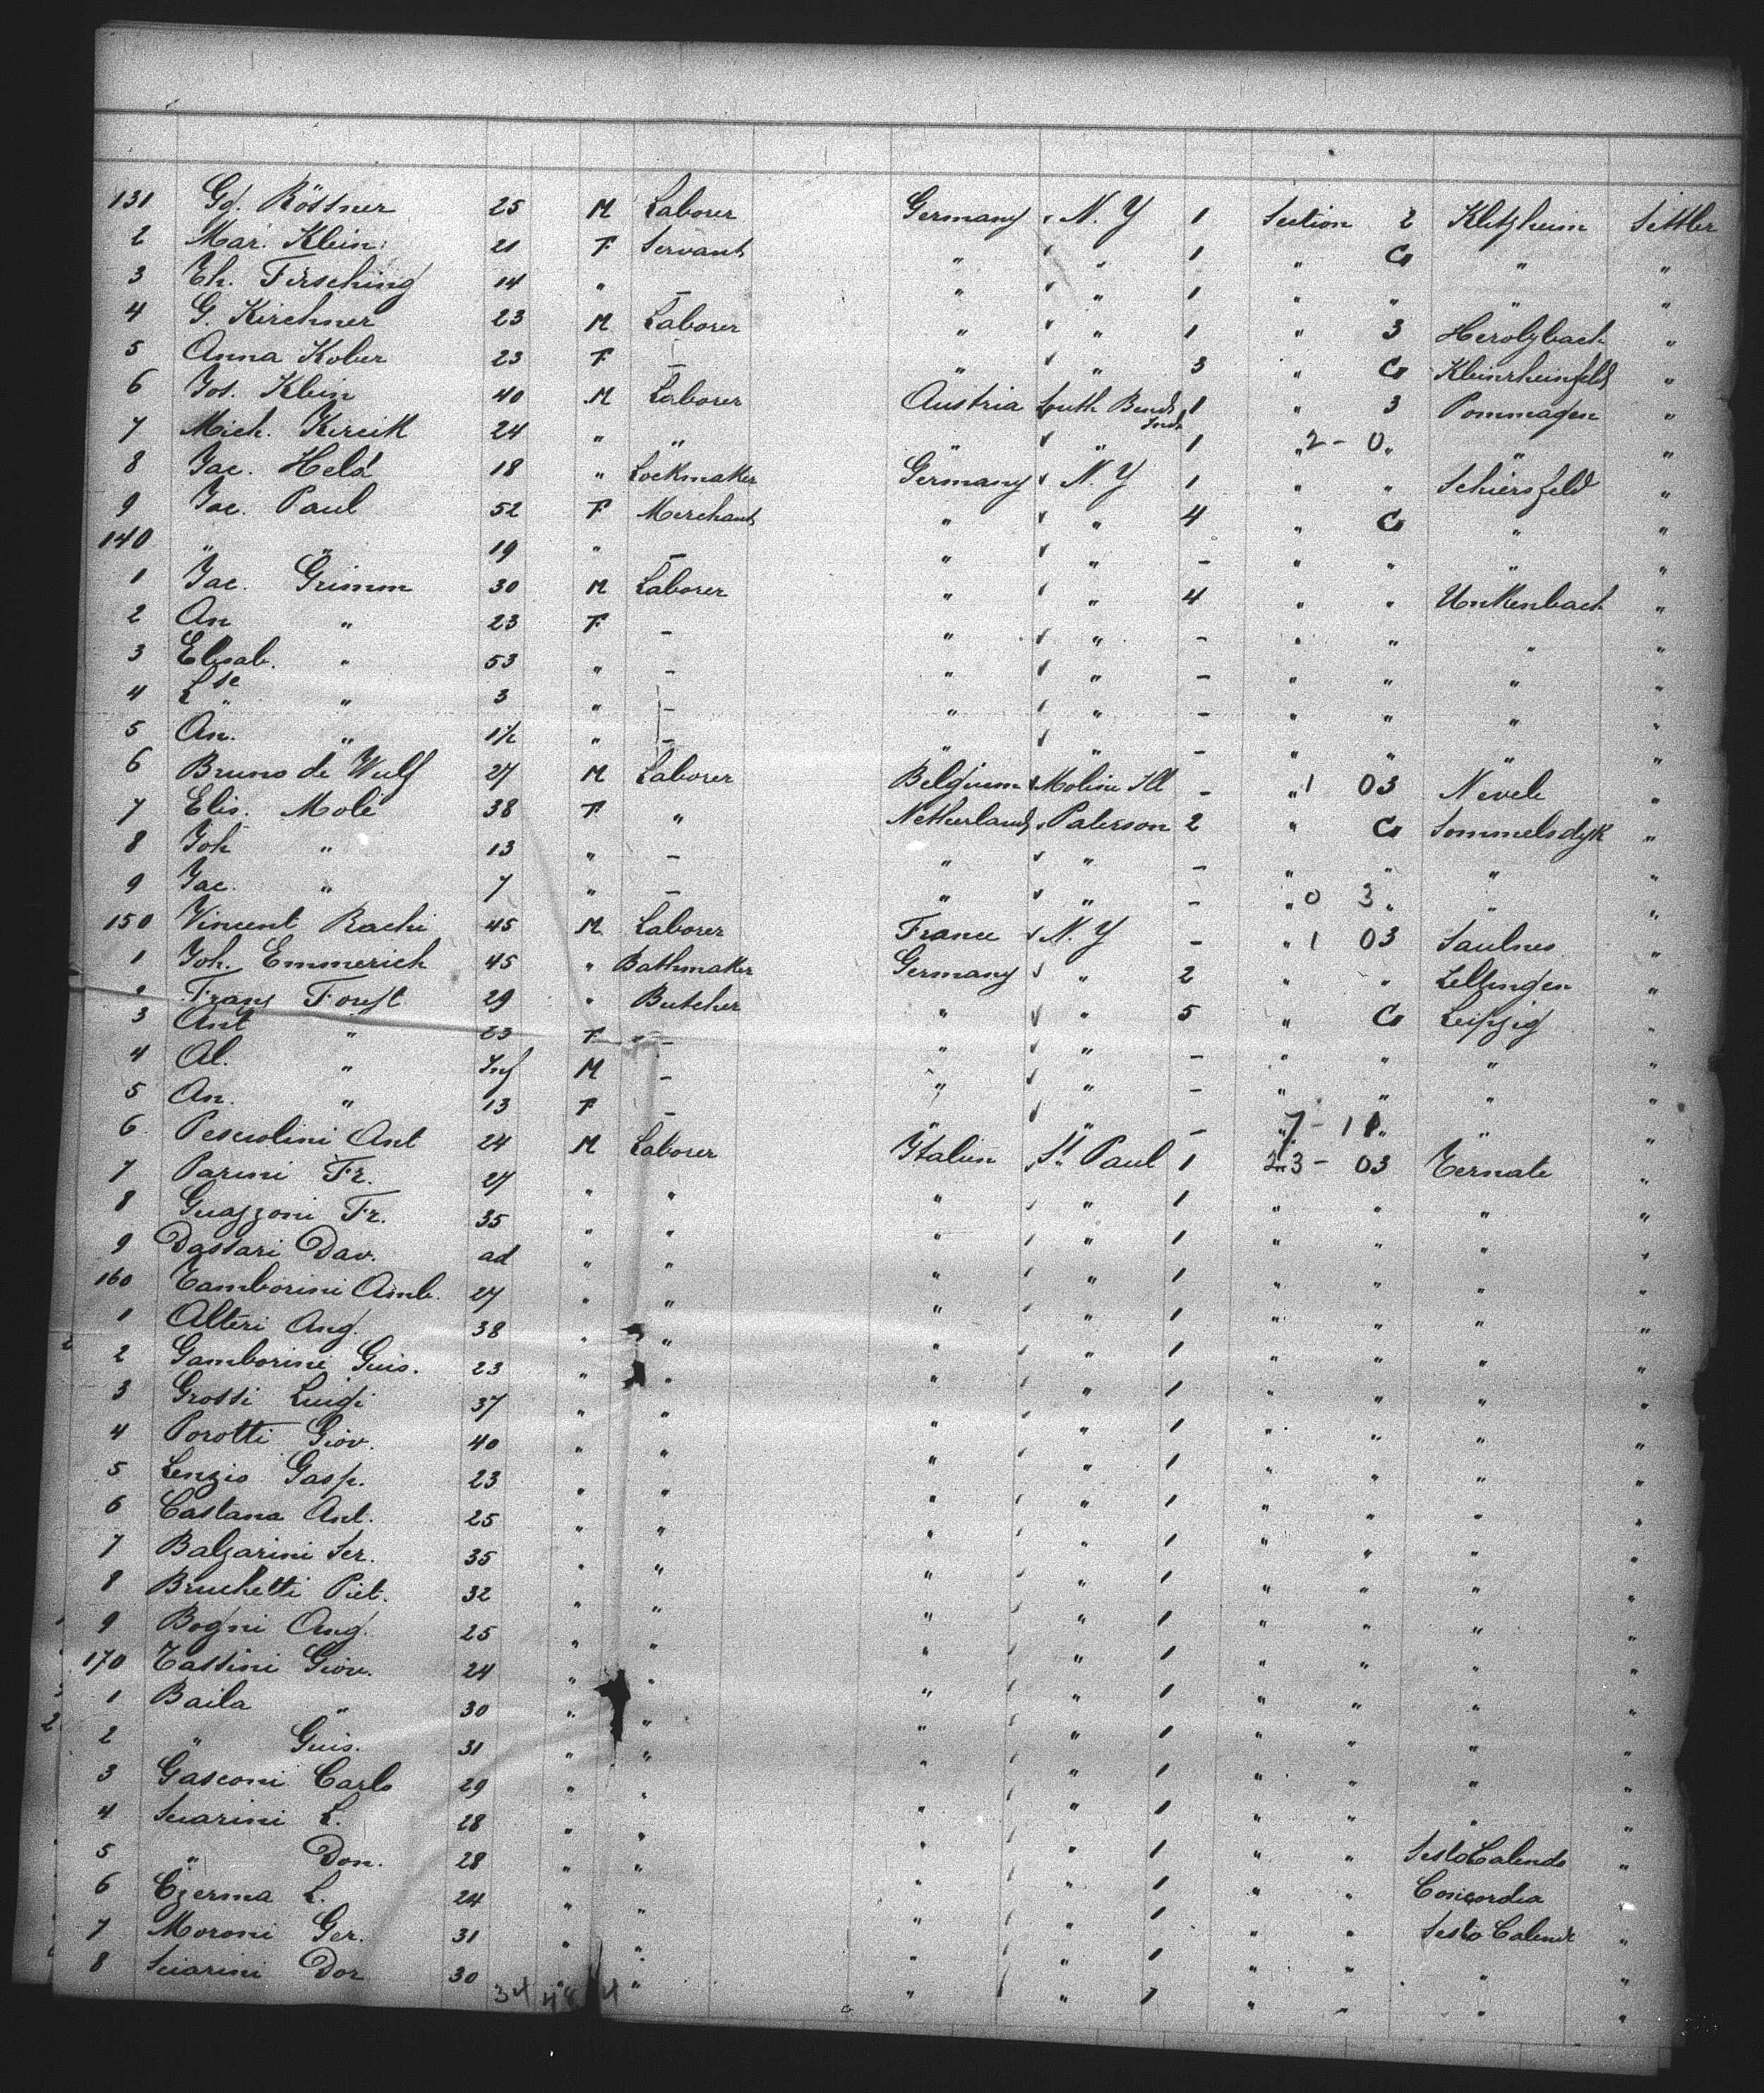 131 Gd. Rössner 25 M Laborer Germany N. Y 1 Section 2 Kletzheim Settler
2 Mar. Klein 21 F Servant " " 1 " G " "
3 Eh. Firsching 14 " – " " 1 " " " "
4 G. Kirchner 23 M Laborer " " 1 " 3 Herolzbach "
5 Anna Kober 23 F – " " 3 " G Kleinrheinfeld "
6 Jos. Klein 40 M Laborer Austria South Bend Ind 1 " 3 Pommagen "
7 Mich. 24 " " " " 1 " 2 - 0 " " "
8 Jac. Held 18 " Lockmaker Germany N. Y 1 " " Schiersfeld "
9 Jac. Paul 52 F Merchant " " 4 " G " "
140 " " 19 " – " " – " " " "
1 Jac. Grimm 30 M Laborer " " 4 " " Unkenbach "
2 An " 23 F – " " – " " " "
3 Elisab. " 53 " – " " – " " " "
4 Lse " 3 " – " " – " " " "
5 An. " 1½ " – " " – " " " "
6 Bruno de Wulf 27 M Laborer Belgium Moline Ill – " 1 03 Nevele "
7 Elis. Mole 38 F " Netherland Paterson 2 " G Sommelsdyk "
8 Joh " 13 " – " " – " " " "
9 Jac. " 7 " – " " – " 0 3 " " "
150 Vincent Rachi 45 M Laborer France N. Y – " 1 03 Saulnes "
1 Joh. Emmerich 45 " Bathmaker Germany " 2 " " Lellingen "
2 Franz Foust 29 " Butcher " " 5 " G Leipzig "
3 Ant " 23 F – " " – " " " "
4 Al. " Inf M – " " – " " " "
5 An. " 13 F – " " – " 7 - 11 " " "
6 Pesciolini Ant 24 M Laborer Italien St. Paul 1 3 - 03 Ternate "
7 Parini Fr. 27 " " " " 1 " " " "
8 Guazzoni Fr. 35 " " " " 1 " " " "
9 Dassari Dav. ad " " " " 1 " " " "
160 Tamborini Amb. 27 " " " " 1 " " " "
1 Alteri Ang. 38 " " " " 1 " " " "
2 Gamborine Guis. 23 " " " " 1 " " " "
3 Grossi Luigi 37 " " " " 1 " " " "
4 Porotti Giov. 40 " " " " 1 " " " "
5 Lenzio Gasp. 23 " " " " 1 " " " "
6 Castana Ant. 25 " " " " 1 " " " "
7 Balzarini Ser. 35 " " " " 1 " " " "
8 Bruchetti Piet. 32 " " " " 1 " " " "
9 Bogni Ang. 25 " " " " 1 " " " "
170 Tassini Giov. 24 " " " " 1 " " " "
1 Baila " 30 " " " " 1 " " " "
2 " Guis. 31 " " " " 1 " " " "
3 Gasconi Carlo 29 " " " " 1 " " " "
4 Sciarini L. 28 " " " " 1 " " Sesto Calende "
5 " Don. 28 " " " " 1 " " Concordia "
6 Czerma L. 24 " " " " 1 " " Sesto Calende "
7 Moroni Ger. 31 " " " " 1 " " " "
8 Sciarini Dor 30 " " " " 1 " " " "
34 48 4